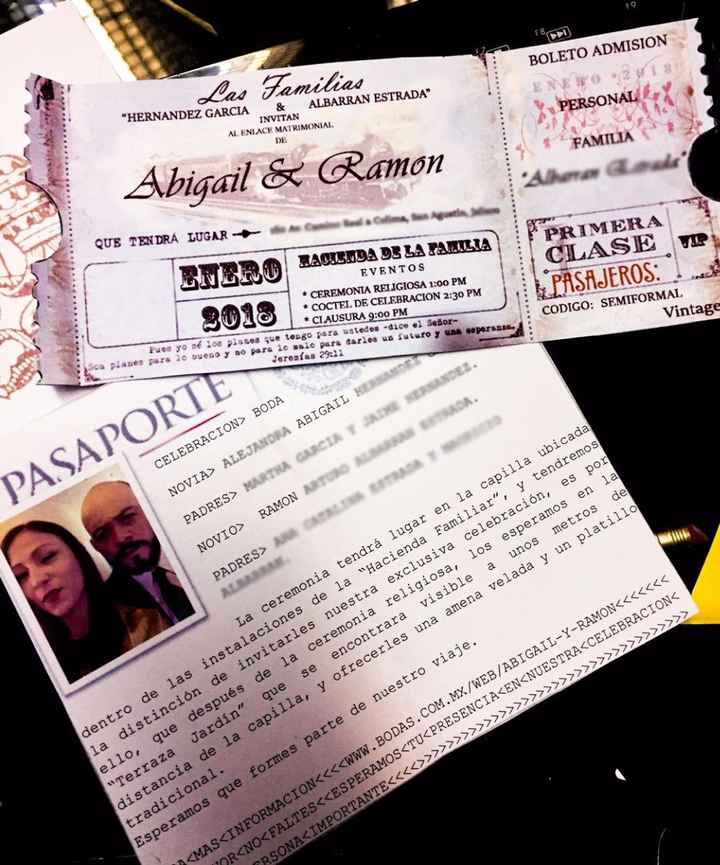 Las Familias
"HERNANDEZ GARCIA & ALBARRAN ESTRADA"
INVITAN
AL ENLACE MATRIMONIAL
DE
Abigail & Ramon
QUE TENDRÁ LUGAR
Av. Camino Real a Colima, San Agustin, Jalisco
ENERO
2018
HACIENDA DE LA FAMILIA
EVENTOS
* CEREMONIA RELIGIOSA 1:00 PM
* COCTEL DE CELEBRACION 2:30 PM
* CLAUSURA 9:00 PM
Pues yo sé los planes que tengo para ustedes -dice el Señor-
Son planes para lo bueno y no para lo malo para darles un futuro y una esperanza.
Jeremías 29:11
BOLETO ADMISION
ENERO 2018
PERSONAL
FAMILIA
"Albarran Estrada"
PRIMERA
CLASE
VIP
PASAJEROS:
CODIGO: SEMIFORMAL
Vintage
PASAPORTE
CELEBRACION> BODA
NOVIA> ALEJANDRA ABIGAIL HERNANDEZ
PADRES> MARTHA GARCIA Y JAIME HERNANDEZ.
NOVIO> RAMON ARTURO ALBARRAN ESTRADA.
PADRES> ANA CATALINA ESTRADA Y
ALBARRAN.
La ceremonia tendrá lugar en la capilla ubicada
dentro de las instalaciones de la "Hacienda Familiar", y tendremos
la distinción de invitarles nuestra exclusiva celebración, es por
ello, que después de la ceremonia religiosa, los esperamos en la
"Terraza Jardín" que se encontrara visible a unos metros de
distancia de la capilla, y ofrecerles una amena velada y un platillo
tradicional.
Esperamos que formes parte de nuestro viaje.
A<MAS<INFORMACION<<<<WWW.BODAS.COM.MX/WEB/ABIGAIL-Y-RAMON<<<<<<<
VOR<NO<FALTES<<ESPERAMOS<TU<PRESENCIA<EN<NUESTRA<CELEBRACION<
ERSONA<IMPORTANTE<<<<>>>>>>>>>>>>>>>>>>>>>>>>>>>>>>>>>>